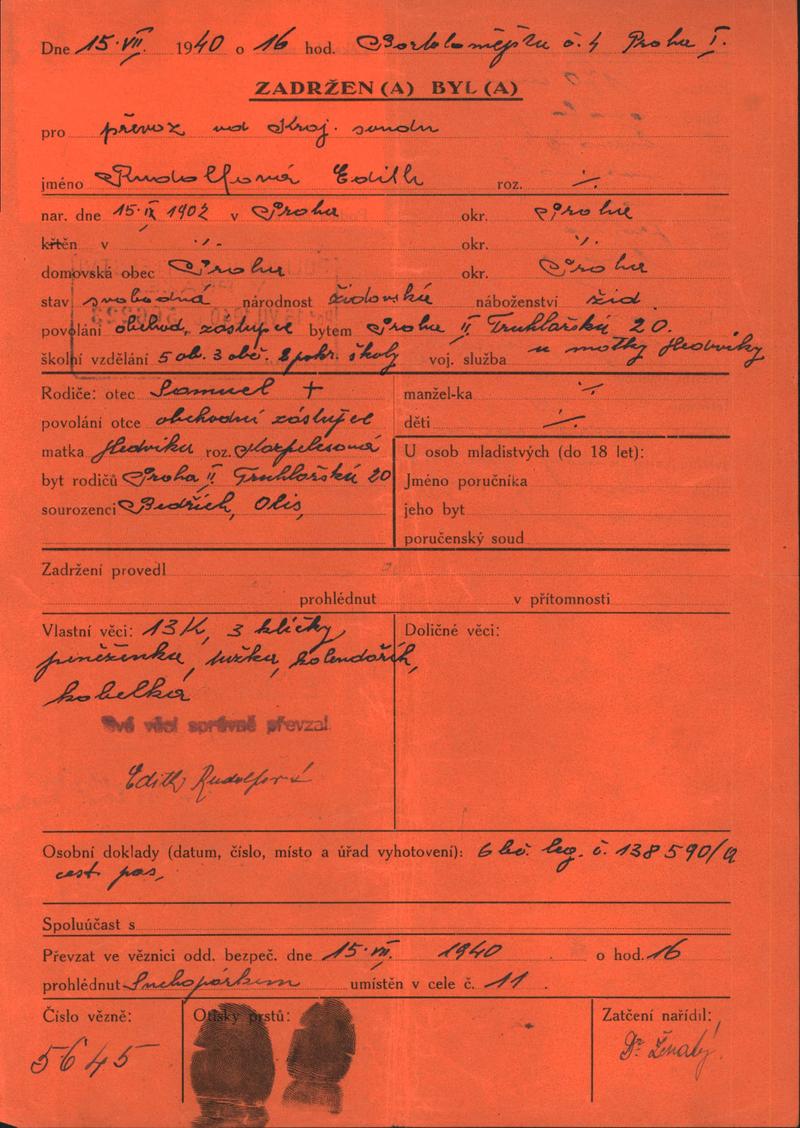 Dne 15. VII. 1940 o 16 hod. Bartolomějská č. 4 Praha I.
ZADRŽEN (A) BYL (A)
pro převoz od Kraj. soudu
jméno Rudolfová Edith roz. ∙/.
nar. dne 15. IX 1902 v Praha okr. Praha
křtěn v ∙/. okr. ∙/.
domovská obec Praha okr. Praha
stav svobodná národnost židovská náboženství žid.
povolání obchod. zástupce bytem Praha II. Truhlářská 20.
školní vzdělání 5 ob. 3 obč. 2 pokr. školy voj. služba u matky Hedviky
Rodiče: otec Samuel + manžel-ka ∙/.
povolání otce obchodní zástupce děti ∙/.
matka Hedvika roz. Karpelesová
U osob mladistvých (do 18 let):
byt rodičů Praha II. Truhlářská 20 Jméno poručníka
sourozenci Bedřich, jeho byt
poručenský soud
Zadržení provedl
prohlédnut v přítomnosti
Vlastní věci: 13 K, 3 klíčky Doličné věci:
peněženka, tužka, kalendářík,
kabelka
Své věci správně převzal
Edith Rudolfová
Osobní doklady (datum, číslo, místo a úřad vyhotovení): leg. č. 138590/
cest. pas,
Spoluúčast s
Převzat ve věznici odd. bezpeč. dne 15. VII. 1940 o hod. 16
prohlédnut Suchopárkem umístěn v cele č. 11.
Číslo vězně: Otisky prstů: Zatčení nařídil:
5645 Dr. Ženatý.